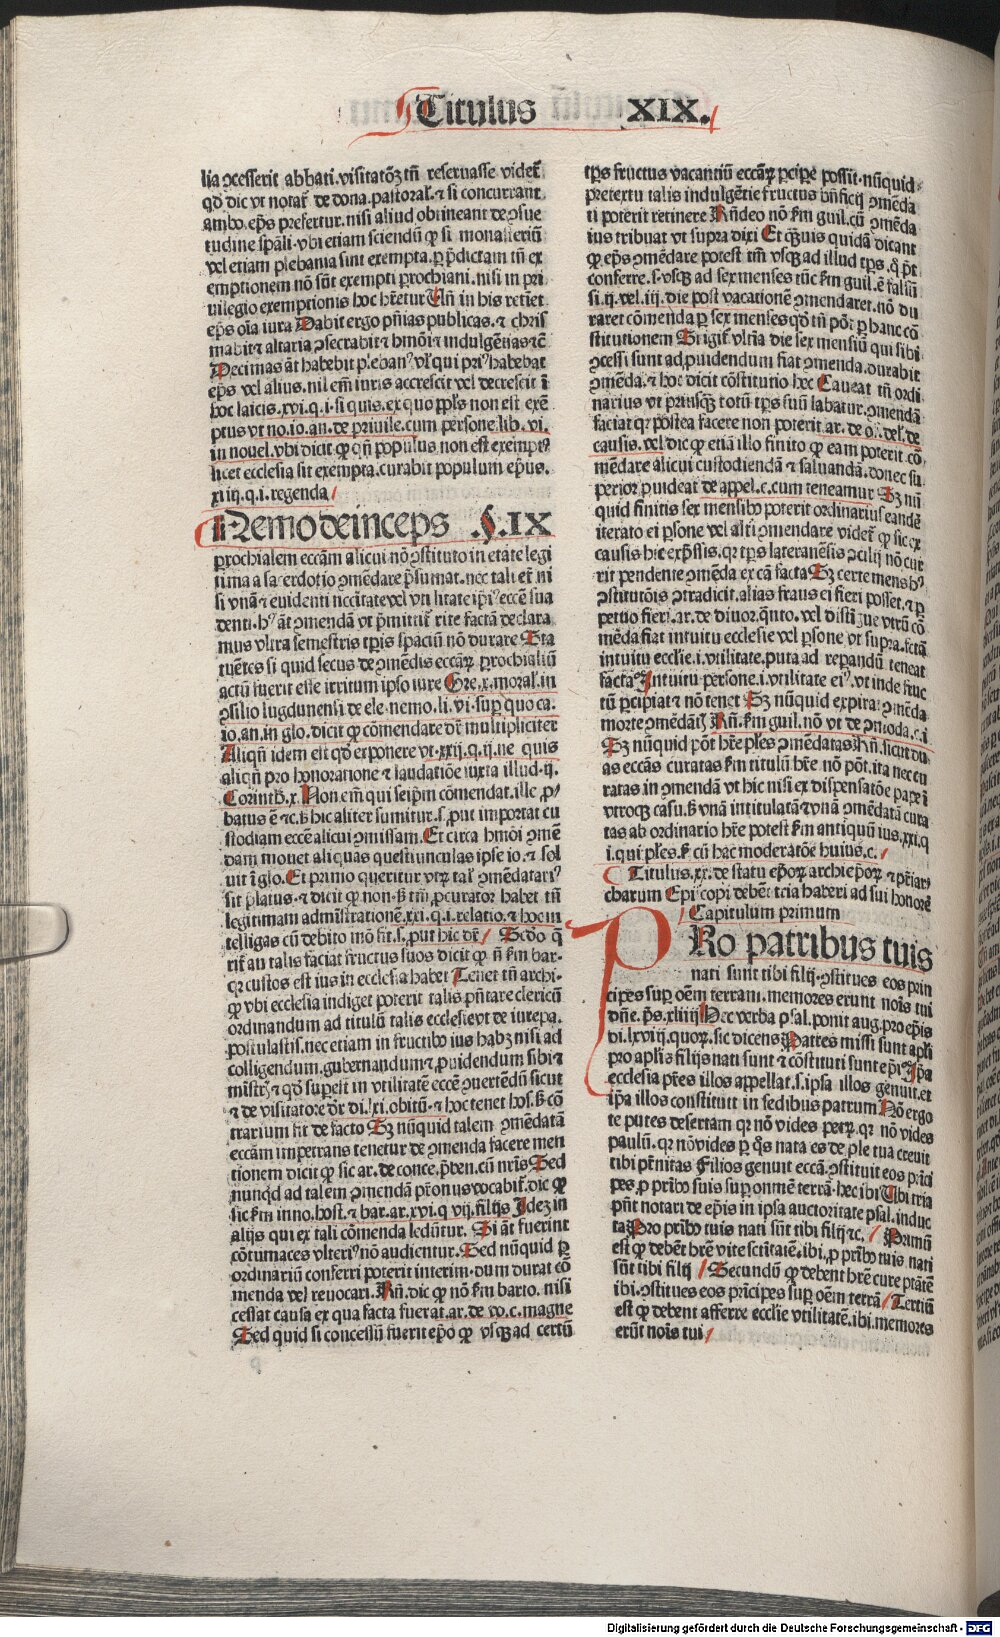 Titulus XIX.
lia ꝯcesserit abbati. visitatōꝫ tñ reseruasse videt᷑
qđ dic vt notat᷑ de dona. pastoral᷑. ⁊ si concurrant
ambo. ep̄s prefertur. nisi aliud obtineant de ꝯsue
tudine sp̄ali. vbi etiam sciendū ꝙ si monasteriū
vel etiam plebania sunt exempta. ꝑ p̄dictam tñ ex
emptionem nō sūt exempti ꝑrochiani. nisi in pri
uilegio exemptionis hoc hr̄etur Un̄ in his retiet
ep̄s oīa iura Dabit ergo pn̄ias publicas. ⁊ chris
mabit ⁊ altaria ꝯsecrabit ⁊ hmōi ⁊ indulgētias ⁊c̄
Decimas āt habebit pleban⁹ vl᷑ qui pri⁹ habebat
ep̄s vel alius. nil em̄ iuris accrescit vel decrescit ī
hoc laicis. xvi. q. i. si quis. ex quo ppl̄s non est exē
ptus vt no. io. an. de priuile. cum persone. lib. vi.
in nouel. vbi dicit ꝙ qn̄ populus non est exempt⁹
licet ecclesia sit exempta. curabit populum ep̄us.
xiiij. q. i. regenda
Nemo deinceps §. IX
ꝑrochialem eccām alicui nō ꝯstituto in etate legi
tima ⁊ sacerdotio ꝯmēdare p̄sumat. nec tali et᷑ ni
si vnā ⁊ euidenti nccītate vel vtilitate ip̄i⁹ eccē sua
denti. h⁹ āt ꝯmendā vt p̄mittit᷑ rite factā declara
mus vltra semestris tp̄is spaciū nō durare Sta
tuētes si quid secus de ꝯmēdis eccāꝝ ꝑrochialiū
actū fuerit esse irritum ipso iure Gre. x. moral. in
ꝯsilio lugdunensi de ele. nemo. li. vi. suꝑ quo ca.
io. an. in glo. dicit ꝙ cōmendare dr̄ multipliciter
Aliqn̄ idem est qđ exponere vt. xxij. q. ij. ne quis
aliqn̄ pro honoratione ⁊ laudatiōe iuxta illud. ij.
Corinth. x. Non em̄ qui seip̄m cōmendat. ille ꝓ
batus ē ⁊c. ß hic aliter sumitur. s. ꝓut importat cu
stodiam eccē alicui ꝯmissam. Et circa hmōi ꝯmē
dam mouet aliquas questiunculas ipse io. ⁊ sol
uit ī glo. Et primo queritur vtꝝ tal᷑ ꝯmēdatari⁹
sit p̄latus. ⁊ dicit ꝙ non. ß tm̄ ꝓcurator habēt tñ
legitimam adminīstrationē. xxi. q. i. relatio. ⁊ hoc in
telligas cū debito mō fit. s. ꝓut hic dr̄ Scdo q̄
rit᷑ an talis faciat fructus suos dicit ꝙ n̄ ẜm bar.
qꝛ custos est ius in ecclesia habet Tenet tñ archi.
ꝙ vbi ecclesia indiget poterit talis pn̄tare clericū
ordinandum ad titulū talis ecclesie vt de iurepa.
postulastis. nec etiam in fructibo ius habꝫ nisi ad
colligendum. gubernandum ⁊ ꝓuidendum sibi ⁊
mīstr̄ ⁊ qđ suꝑest in vtilitatē eccē ꝯuertēdū sicut
⁊ de visitatore dr̄ di. lxi. obitū. ⁊ hoc tenet hos. ß cō
trarium fit de facto Sꝫ nūquid talem ꝯmēdatā
eccām impetrans tenetur de ꝯmenda facere men
tionem dicit ꝙ sic ar. de conce. p̄ben. cū nr̄is Sed
nunqđ ad talem ꝯmendā pr̄onus vocabit᷑. dic ꝙ
sic ẜm inno. host. ⁊ bar. ar. xvi. q. vij. filijs Ideꝫ in
alijs qui ex tali cōmenda ledūtur. Si āt fuerint
cōtumaces vlteri⁹ nō audientur. Sed nūquid ꝑ
ordinariū conferri poterit interim. dum durat cō
menda vel reuocari. Rn̄. dic ꝙ nō ẜm barto. nisi
cessat causa ex qua facta fuerat. ar. de vo. c. magne
Sed quid si concessū fuerit ep̄o ꝙ vsqꝫ ad certū
tp̄s fructus vacantiū eccāꝝ ꝑciꝑe possit. nūquid
pretextu talis indulgētie fructus bn̄ficij ꝯmēda
ti poterit retinere Rn̄deo nō ẜm guil. cū ꝯmēda
ius tribuat vt supra dixi Et qūis quidā dicant
ꝙ ep̄s ꝯmēdare potest tm̄ vsqꝫ ad illud tp̄s. q̊ pōt
conferre. s. vsqꝫ ad sex menses tūc ẜm guil. ē falsū
si. ij. vel. iij. die post vacationē ꝯmendaret. nō du
raret cōmenda ꝑ sex menses qđ tñ pōt ꝑ hanc cō
stitutionem Erigit᷑ vltīa die sex mensiū qui sibi
ꝯcessi sunt ad ꝓuidendum fiat ꝯmenda. durabit
ꝯmēda. ⁊ hoc dicit cōstitutio hec Caueat tñ ordi
narius vt priusqꝫ totū tp̄s suū labatur. ꝯmendā
faciat qꝛ postea facere non poterit ar. de o. del᷑. de
causis. vel dic ꝙ etiā illo finito ꝙ eam poterit cō
mēdare alicui custodiendā ⁊ saluandā. donec su
perior ꝓuideat de appel. c. cum teneamur Sꝫ nū
quid finitis sex mensibo poterit ordinarius eandē
iterato ei ꝑsone vel alt̄i ꝯmendare videt᷑ ꝙ sic ex
causis hic exp̄ssis. qꝛ tp̄s lateranēsis ꝯcilij nō cur
rit pendente ꝯmēda ex cā facta Sꝫ certe mens h⁹
ꝯstitutōis ꝯtradicit. alias fraus ei fieri posset. ⁊ ꝑ
petuo fieri. ar. de diuor. qn̄to. vel distīgue vtrū cō
mēda fiat intuitu ecclesie vel ꝑsone vt supra. sctā
intuitu ecclīe. i. vtilitate. puta ad reparandū teneat
facta Intuitu persone. i. vtilitate ei⁹. vt inde fruc
tū ꝑcipiat ⁊ nō tenet Sꝫ nūquid expirat ꝯmēda
morte ꝯmēdātis Rn̄. ẜm guil. nō vt de ꝯmoda. c. i
Sꝫ nūquid pōt hr̄e ples ꝯmēdatas Rn̄. sicut du
as eccās curatas ẜm titulū hr̄e. nō pōt. ita nec cu
ratas in ꝯmendā vt hic nisi ex dispensatōe pape ī
vtroqꝫ casu. ß vnā intitulatā ⁊ vnā ꝯmēdatā cura
tas ab ordinario hr̄e potest ẜm antiquū ius. xxi. q
i. qui ples. ß cū hac moderatōe huius. c.
Titulus. xx. de statu ep̄oꝝ archiep̄oꝝ ⁊ pr̄iar
charum Episcopi debēt tcia haberi ad sui honorē
Capitulum primum
PRo patribus tuis
nati sunt tibi filij. ꝯstitues eos prin
cipes suꝑ oēm terram. memores erunt nois tui
dn̄e. p̄s. xliiij Hec verba psal. ponit aug. pro ep̄is
di. lxviij. quoꝝ. sic dicens Pattes missi sunt apl̄i
pro apl̄is filijs nati sunt ⁊ cōstituti sunt ep̄i Ip̄a
ecclesia pr̄es illos appellat. s. ipsa illos genuit. et
ip̄a illos constituit in sedibus patrum Nō ergo
te putes desertam qꝛ nō vides petrꝝ. qꝛ nō vides
paulū. qꝛ nō vides ꝑ q̊s nata es de ple tua creuit
tibi pr̄nitas Filios genuit eccā. ꝯstituit eos prīci
pes. ꝓ pribo suis suꝑ omnē terrā. hec ibi Ubi tria
pn̄t notari de ep̄is in ipsa auctoritate psal. induc
ta Pro pribo tuis nati sūt tibi filij ⁊c. Primū
est ꝙ debēt hr̄e vite sctitatē. ibi. ꝓ pribo tuis nati
sūt tibi filij Secundū ꝙ debent hr̄e cure ptātē
ibi. ꝯstitues eos prīcipes suꝑ oēm terrā Tertiū
est ꝙ debent afferre ecclīe vtilitatē. ibi. memores
erūt nois tui
Digitalisierung gefördert durch die Deutsche Forschungsgemeinschaft - DFG